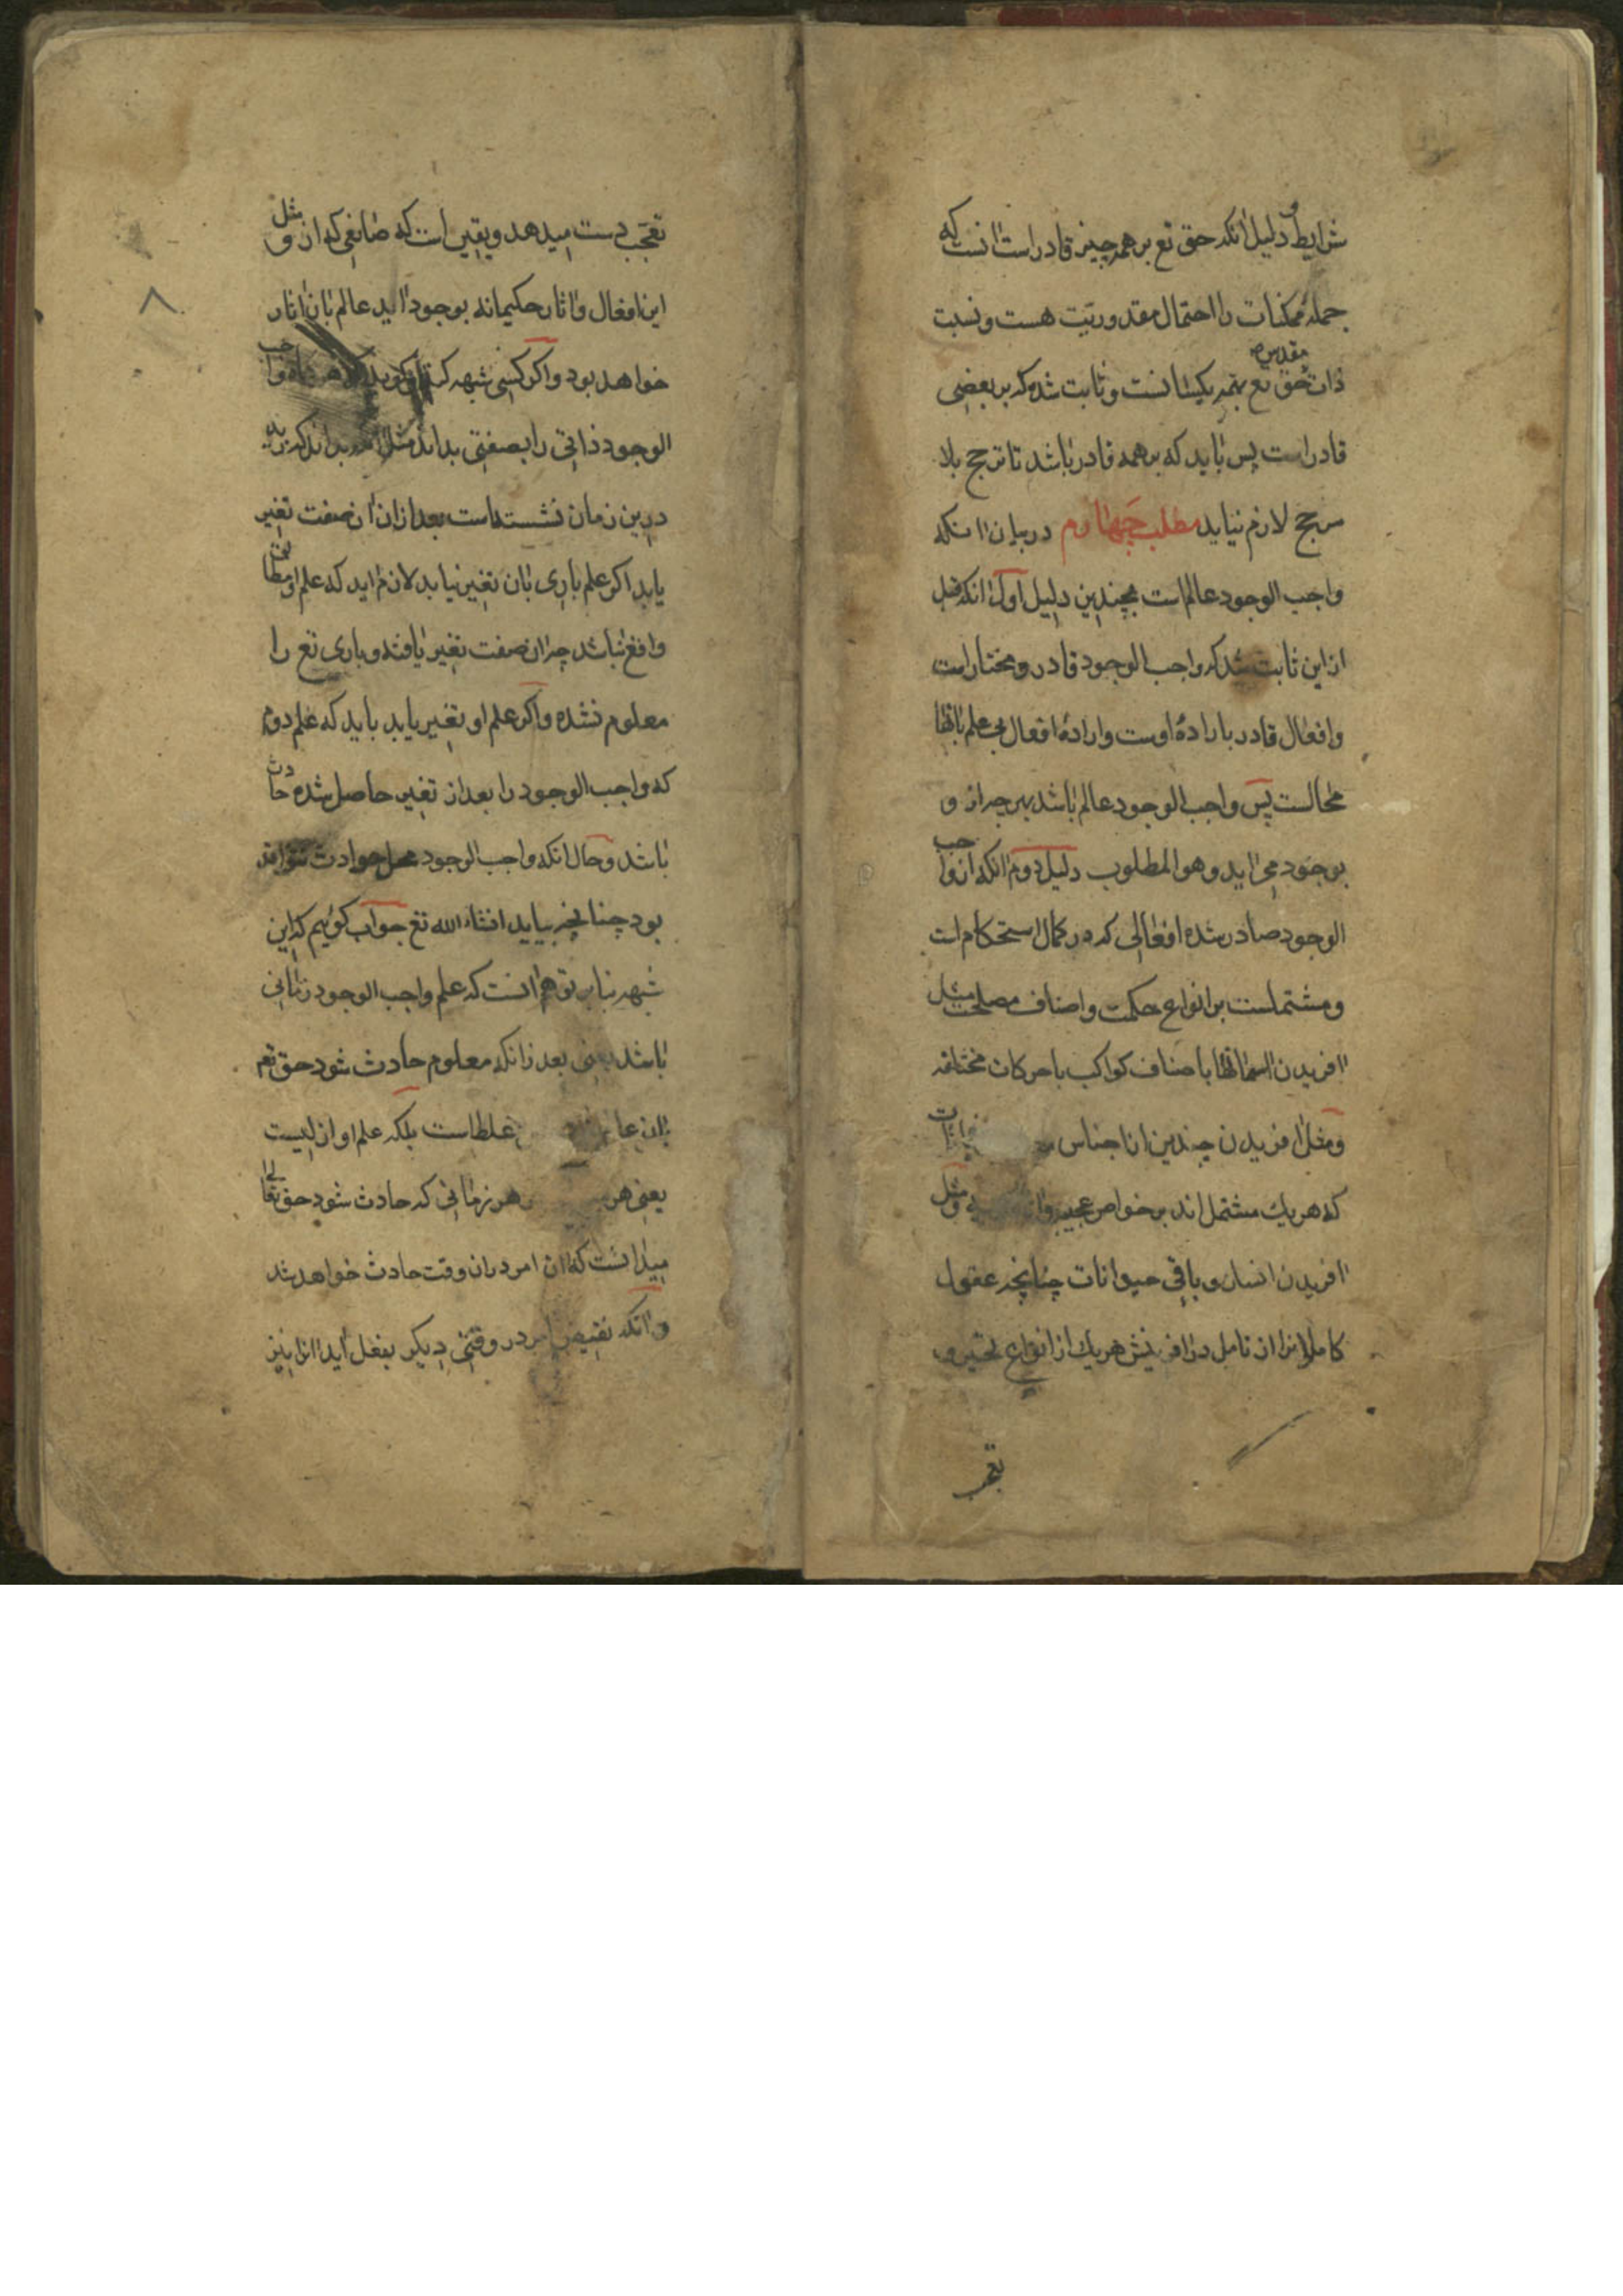 شرایط و دلیل انکه حق تع بر همه چیز قادر است انست که
جمله ممکنات را احتمال مقدوریّت هست و نسبت
ذات مقدس حق تع بهمه یکسانست و ثابت شده که بر بعضی
قادر است پس باید که بر همه قادر باشد تا ترجیح بلا
مرجح لازم نیاید مطلب چهارم در بیان انکه
واجب الوجود عالم است بچندین دلیل اول انکه قبل
از این ثابت شد که واجب الوجود قادر و مختار است
وافعال قادر باراده اوست وارادهٔ افعال بی علم بانها
محالست پس واجب الوجود عالم باشد بهر چه از و
بوجود می اید وهو المطلوب دلیل دوم انکه از واجب
الوجود صادر شده افعالی که در کمال استحکام است
ومشتملست بر انواع حکمت واصناف مصلحت مثل
افریدن اسمانها باصناف کواکب باحرکات مختلفه
ومثل افریدن چندین از اجناس
که هریك مشتمل اند بر خواص عجیبه ومثل
افریدن انسان و باقی حیوانات چنانچه عقول
کاملانرا از تامل در افرینش هریك از انواع تحیر و
تعجب
تعجّب دست میدهد ویقین است که صانعی که از و مثل
این افعال واثار حکیمانه بوجود اید عالم بان اثار
خواهد بود واکر کسی شبهه کند واجب
الوجود ذاتی را بصفتی بداند مثل بداند که زید
درین زمان نشسته است بعد ازان ان صفت تغییر
یابد اکر علم باری بان تغییر نیابد لازم اید که علم او مطابق
واقع نباشد چه ان صفت تغییر یافته وباری تع را
معلوم نشده واکر علم او تغییر یابد باید که علم دوم
که واجب الوجود را بعد از تغییر حاصل شده حادث
باشد وحال انکه واجب الوجود محل حوادث نتواند
بود چنانچه بیاید انشاء الله تع جواب کوئیم که این
شبهه بنا بر توهم انست که علم واجب الوجود زمانی
باشد یعنی بعد زانکه معلوم حادث شود حق تعم
بان غلط است بلکه علم او ازلیست
یعنی هر هر زمانی که حادث شود حق تعالی
میدانست که ان امر دران وقت حادث خواهد شد
وانکه نقیض امر در وقتی دیکر بفعل اید انرا نیز
۸